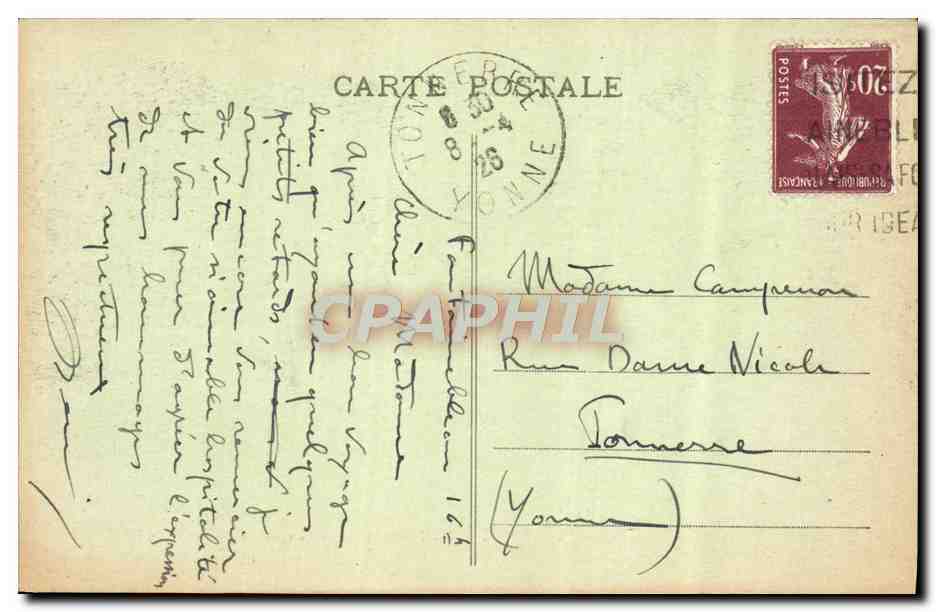 CARTE POSTALE
TONNERRE YONNE
8 30
8 -4
26
20c
POSTES
REPUBLIQUE FRANCAISE
Fontainebleau 16 h
Chère Madame
Après un bon voyage
bien qu'ayant eu quelques
petits retards, je
viens encore vous remercier
de votre si aimable hospitalité
et vous prier d'agréer l'expression
de mes hommages
très respectueux
Madame Campenon
Rue Dame Nicole
Tonnerre
(Yonne)
CPAPHIL